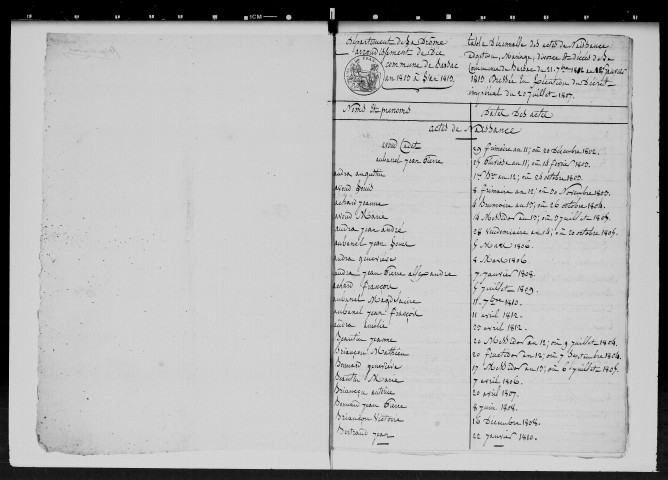 Département de la Drôme
arrondissement de Die
commune de Barsac
an 1803 à 1813.
table Décennalle des actes de Naissance
Doption, Mariage, divorce et décès de la
Commune de Barsac du 21. 7bre
1813 Dressée En Exécution du Décret
impérial du 20 juillet 1807.
Noms Et prenoms
Dates Des actes
actes de Naissance
avond Cadet
29 frimaire an 11; ou 20 décembre 1802.
aubanel jean Pierre
audra augustin
avond Louis
8 frimaire an 12; ou 30 Novembre 1803.
achard jeanne
4 Brumaire an 13; ou 26 octobre 1804.
avond Marie
14 Messidor an 13; ou 3 juillet 1805.
audra jean andré
28 vendemiaire an 14; ou 20 octobre 1805.
aubanel jean Louis
5 Mars 1806.
audra genevieve
8 Mars 1806.
audra jean Pierre allexandre
7 janvier 1808.
achard françois
5 juillet 1809.
aubanel Magdelaine
11. 7bre 1810.
aubanel jean françois
11 avril 1812.
audra amélie
23 avril 1812.
Beautin jeanne
20 Messidor an 12; ou 9 juillet 1804.
Briançon Mathieu
20 fructidor an 12; ou 7 Septembre 1804.
Bernard genevieve
17 Messidor an 13; ou 6 juillet 1805.
Beautin Marie
7 avril 1806.
Briançon antoine
20 avril 1807.
Bernard jean Pierre
8 juin 1808.
Briançon Victoire
16 Decembre 1808.
Bertrand jean
22 janvier 1810.